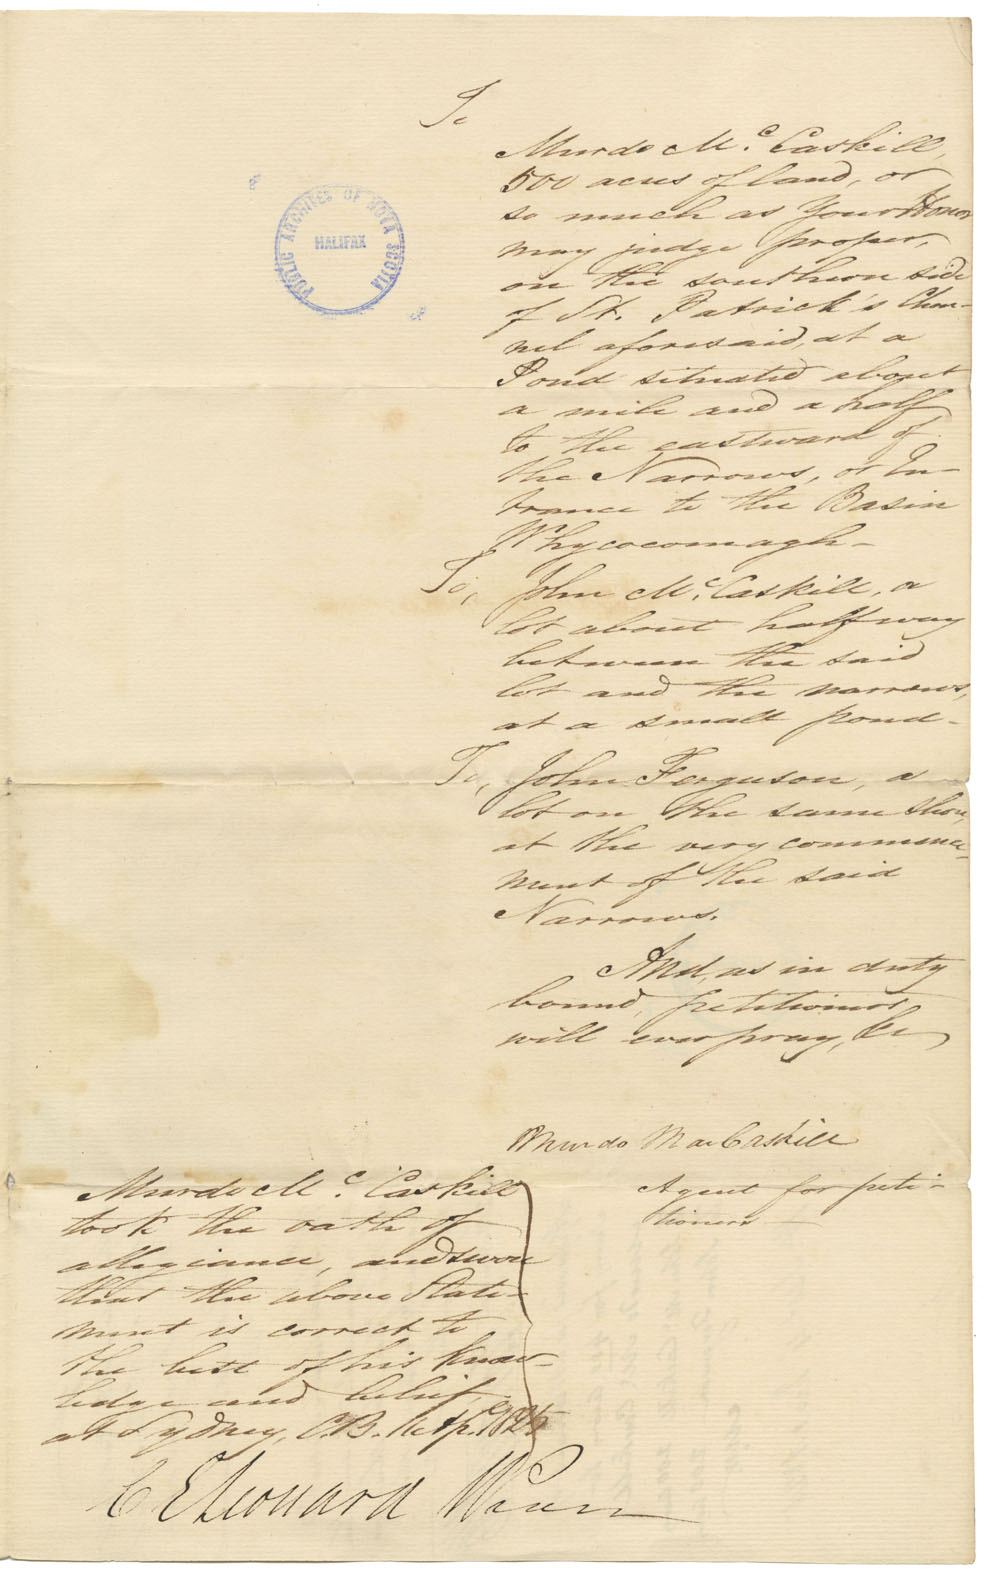 To
Murdo Mc. Caskill,
500 acres of land, or
so much as Your Honor
may judge proper,
on the southern side
of St. Patrick's Chan-
nel aforesaid, at a
Pond situated about
a mile and a half
to the eastward of
the Narrows, or En-
trance to the Basin
Whycocomagh-
To, John Mc. Caskill, a
lot about half way
between the said
lot and the narrows,
at a small pond-
To, John Ferguson, a
lot on the same shore,
at the very commence-
ment of the said
Narrows.
And, as in duty
bound, petitioner
will ever pray, &c
Murdo MacCaskill
Agent for peti-
tioners
Murdo Mc. Caskill
took the oath of
allegiance, and swore
that the above State-
ment is correct to
the best of his know-
ledge and belief,
at Sydney, C.B.
C E Leonard
PUBLIC ARCHIVES OF NOVA SCOTIA
HALIFAX